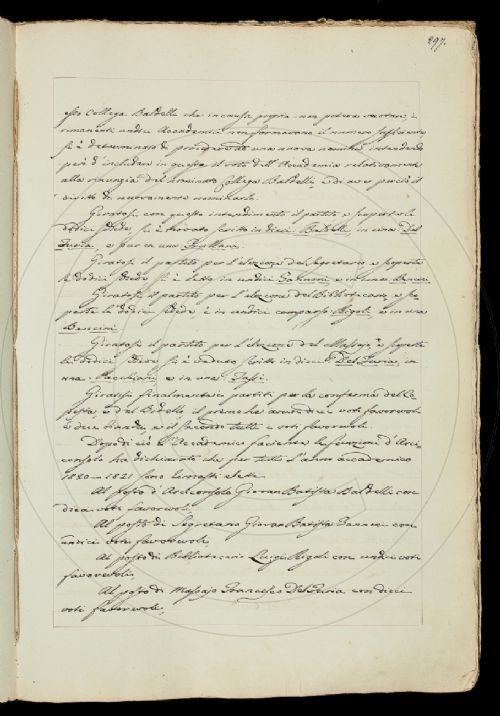 297.
esso Collega Baldelli che in causa propria non poteva votare, i
rimanenti undici Accademici non formavano il numero sufficiente
si è determinato di procedere ad una nuova nomina intendendo
però d'includere in questa il voto dell'Accademia relativamente
alla rinunzia del nominato Collega Baldelli, e di aver perciò il
diritto di nuovamente nominarlo.
Giratosi con questo intendimento il partito e scoperte le
dodici schede, si è trovato scritto in dieci Baldelli in una Del
Furia, e pur in una
Giratosi il partito per l'elezione del Segretario e scoperte
le dodici schede si è letto in undici Zannoni e in una Bencini
Giratosi il partito per l'elezione del Bibliotecario, e sco
perte le dodici schede è in undici comparso Rigoli, e in una
Bencini.
Giratosi il partito per l'elezione del Massajo, e scoperte
le dodici schede si è veduto scritto in dieci Del Furia, in
una e in una
Giratisi finalmente i partiti per la conferma del
e del Bidello, il primo ha avuto dieci voti favorevoli
e due bianchi, e il secondo tutti i voti favorevoli.
Dopo di ciò l'Accademico facente le funzioni d'Arci
consolo ha dichiarato che per tutto l'anno accademico
1820 - 1821 sono rimasti eletti
Al posto d'Arciconsolo Giovan Batista Baldelli con
dieci voti favorevoli.
Al posto di Segretario Giovan Batista Zannoni con
undici voti favorevoli
Al posto di Bibliotecario Luigi Rigoli con undici voti
favorevoli,
Al posto di Massajo Francesco Del Furia con dieci
voti favorevoli,